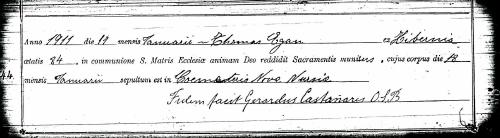 Anno 1911 die 19 mensis Januarii - Thomas Egan ex Hibernia
ætatis 84 in communione S. Matris Ecclesiæ animam Deo reddidit Sacramentis munitus, cujus corpus die 19
mensis Januarii sepultum est in Coemeterio Nova Nursia
Fidem facit Gerardus Castañares O.S.B